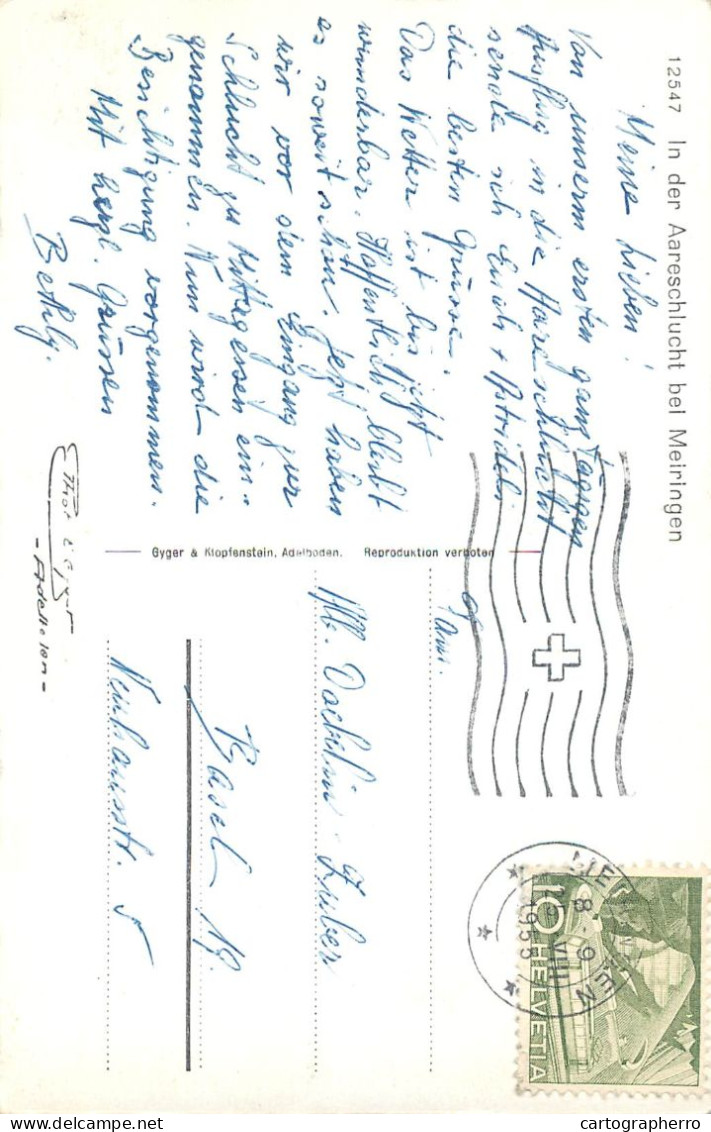 12547 In der Aareschlucht bei Meiringen
Meine Lieben!
Von unserm ersten ganztägigen
Ausflug in die Aareschlucht
sende ich Euch + Astridli
die besten Grüsse.
Das Wetter ist bis jetzt
wunderbar. Hoffentlich bleibt
es soweit schön. Jetzt haben
wir vor dem Eingang zur
Schlucht zu Mittagessen ein-
genommen. Nun wird die
Besichtigung vorgenommen.
Mit herzl. Grüssen
Bethly.
Gyger & Klopfenstein, Adelboden. Reproduktion verboten
Fam.
Alb. Dachelin-Huber
Basel 19.
Neuhausstr. 5
- Adelboden -
8. - 9
VIII
10 HELVETIA
cartographerro